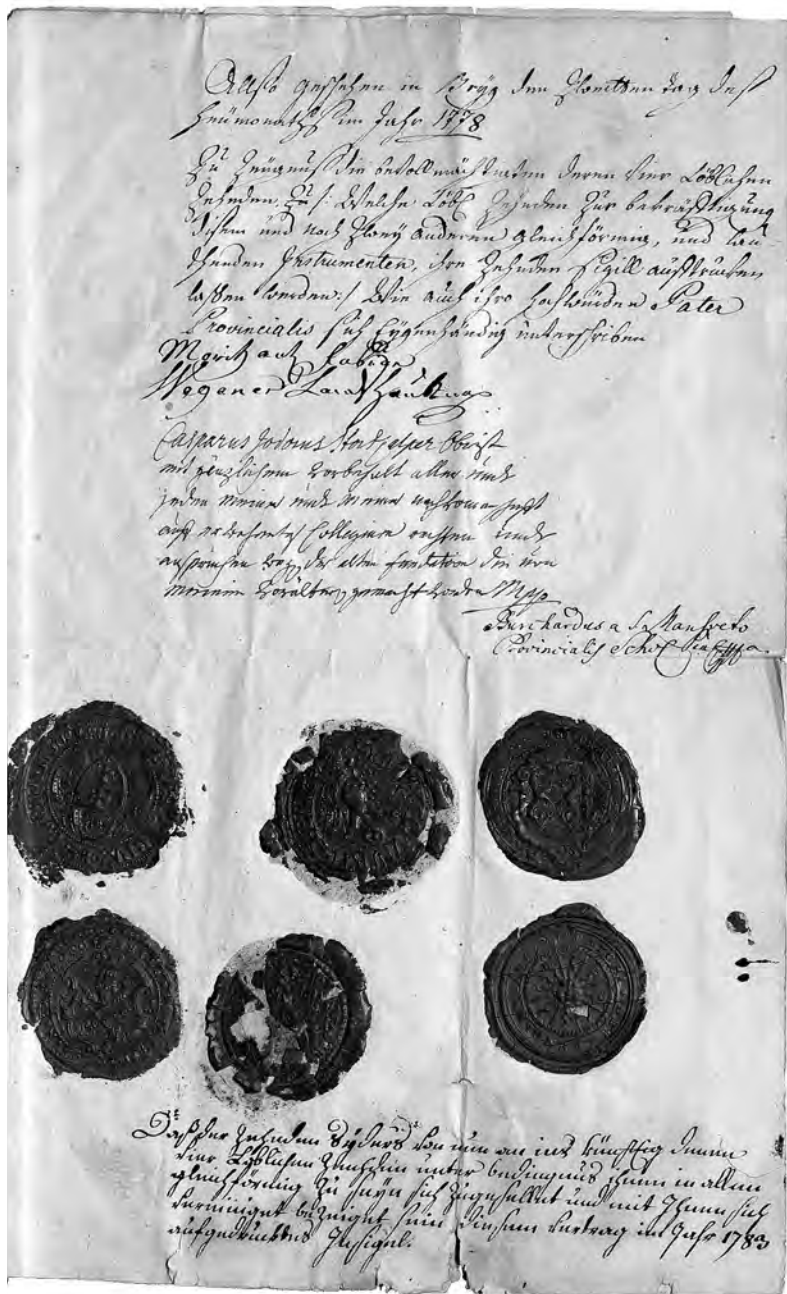 Allso geschehen in Bryg den Zweitten tag deß
Heümonaths im Jahr 1778
Zu Zeügnuß die bevollmächtigten deren Vier Löblichen
Zehnden, /: Welche Löbl Zehnden Zur bekräfftigung
disem und noch Zwey anderen gleichförmig, und lau-
thenden Instrumenten, ihre Zehnden Sigill auftrucken
lassen werden:/ Wie auch ihro hochwürden Pater
Provincialis sich Eÿgenhändig unterschriben
Moritz
Wegener Landtshaubtman
Casparus Jodocus Stockalper Obrist
mit gänzlichem Vorbehalt aller undt
jeden meiner undt meiner nachkommenschafft
auf Collegium rechten undt
ansprüchen der alten fundation die von
meinem Vorälter gemacht worden Mpp
Burchardus a S. Mansveto
Provincialis Schol Piar
Daß der Zehnden Syders von nun an ins künftig denen
Vier Löblichen Zehnden unter bedingnus ihnen in allem
gleichförmig Zu seyn sich Zugesellet und mit Ihnen sich
Vereiniget bezeiget sein diesem Vertrag im Jahr 1783
aufgedrucktes Insigel.